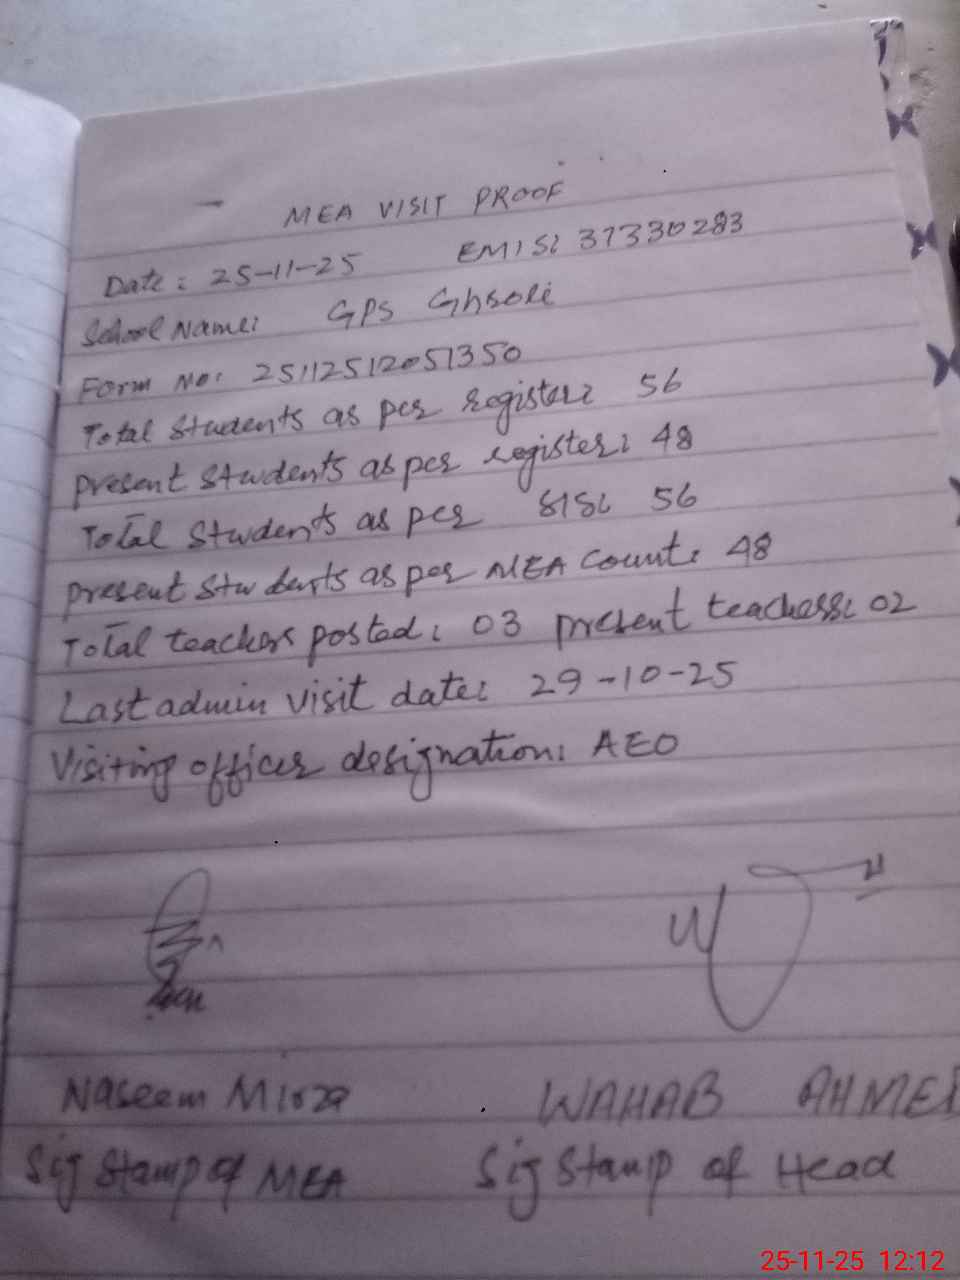 MEA VISIT PROOF
Date: 25-11-25 EMIS: 37330283
School Name: GPS Ghsoli
Form No: 25112512051350
Total Students as per register: 56
present students as per register: 48
Total Students as per SIS: 56
present Students as per MEA Count: 48
Total teachers posted: 03 present teachers: 02
Last admin visit date: 29-10-25
Visiting officer designation: AEO
Naseem Mirza WAHAB AHMED
Sig Stamp of MEA Sig Stamp of Head
25-11-25 12:12